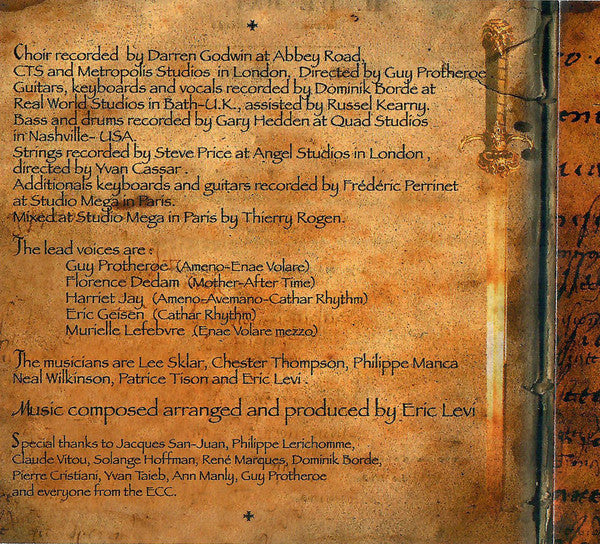 Choir recorded by Darren Godwin at Abbey Road,
CTS and Metropolis Studios in London, Directed by Guy Protheroe
Guitars, keyboards and vocals recorded by Dominik Borde at
Real World Studios in Bath-U.K., assisted by Russel Kearny.
Bass and drums recorded by Gary Hedden at Quad Studios
in Nashville- USA.
Strings recorded by Steve Price at Angel Studios in London ,
directed by Yvan Cassar .
Additionals keyboards and guitars recorded by Frédéric Perrinet
at Studio Mega in Paris.
Mixed at Studio Mega in Paris by Thierry Rogen.
The lead voices are :
Guy Protheroe (Ameno-Enae Volare)
Florence Dedam (Mother-After Time)
Harriet Jay (Ameno-Avemano-Cathar Rhythm)
Eric Geisen (Cathar Rhythm)
Murielle Lefebvre (Enae Volare mezzo)
The musicians are Lee Sklar, Chester Thompson, Philippe Manca
Neal Wilkinson, Patrice Tison and Eric Levi .
Music composed arranged and produced by Eric Levi
Special thanks to Jacques San-Juan, Philippe Lerichomme,
Claude Vitou, Solange Hoffman, René Marques, Dominik Borde,
Pierre Cristiani, Yvan Taieb, Ann Manly, Guy Protheroe
and everyone from the ECC.